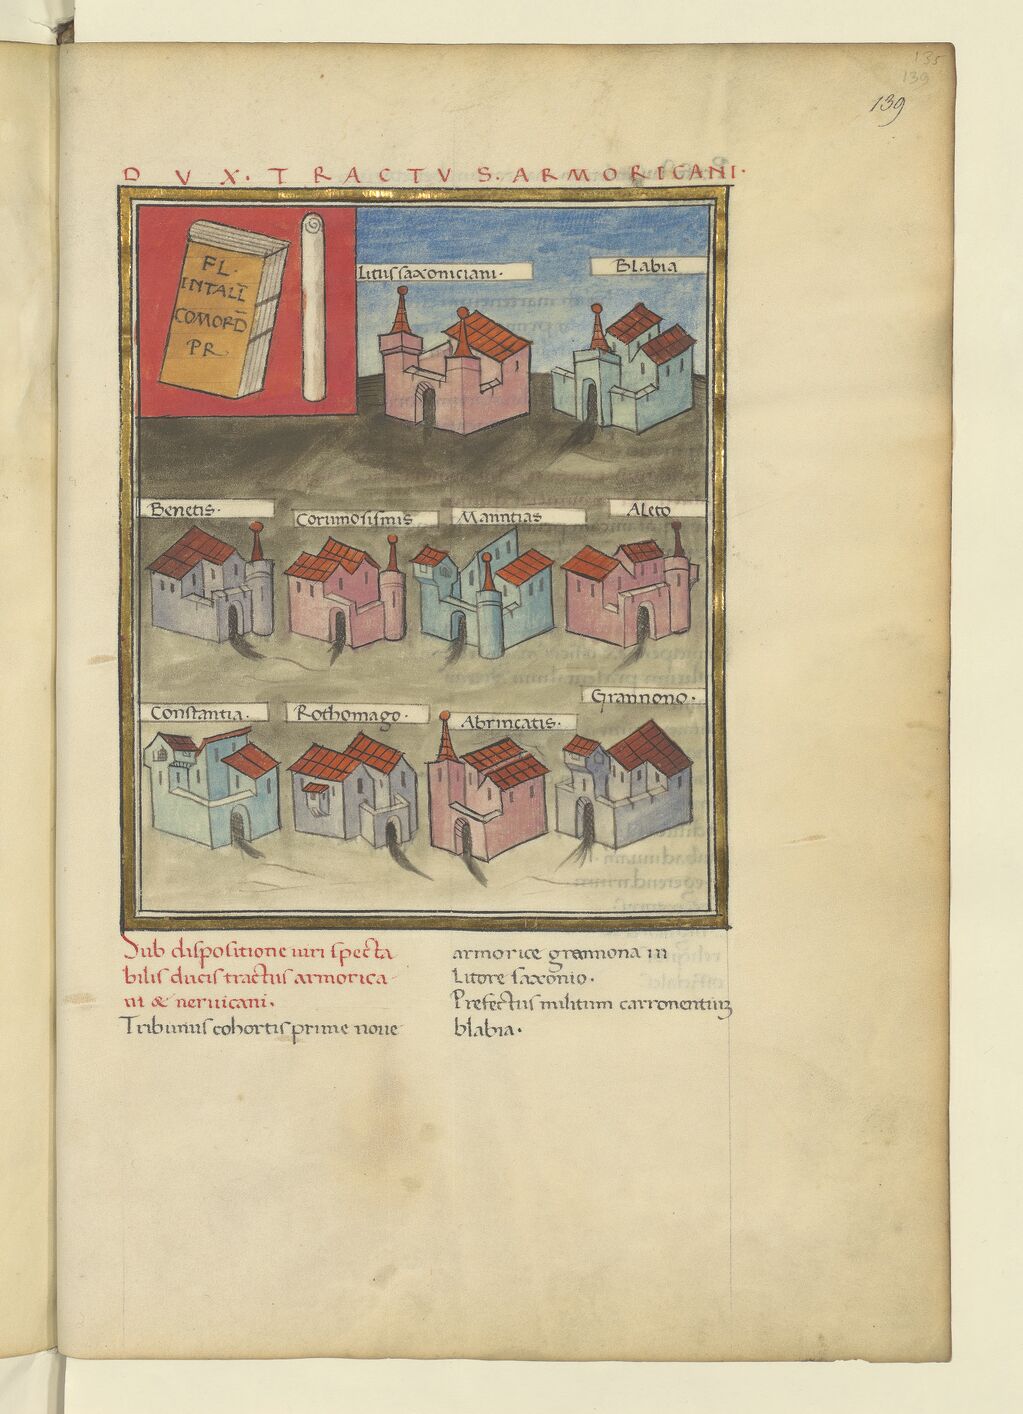 135
139
139
D V X · T R A C T V S · A R M O R I C A N I ·
FL ·
INTALL̅
COMORD̅
PR
Litus saxoniciani ·
Blabia
Benetis ·
Corumosismis
Manntias
Aleto
Constantia ·
Rothomago ·
Abrincatis ·
Grannono ·
Sub dispositione uiri specta
bilis ducis tractus armorica-
ni & neruicani ·
Tribunus cohortis prime noue
armorice grannona in
Litore saxonio ·
Prefectus militum carronentiuʒ
blabia ·